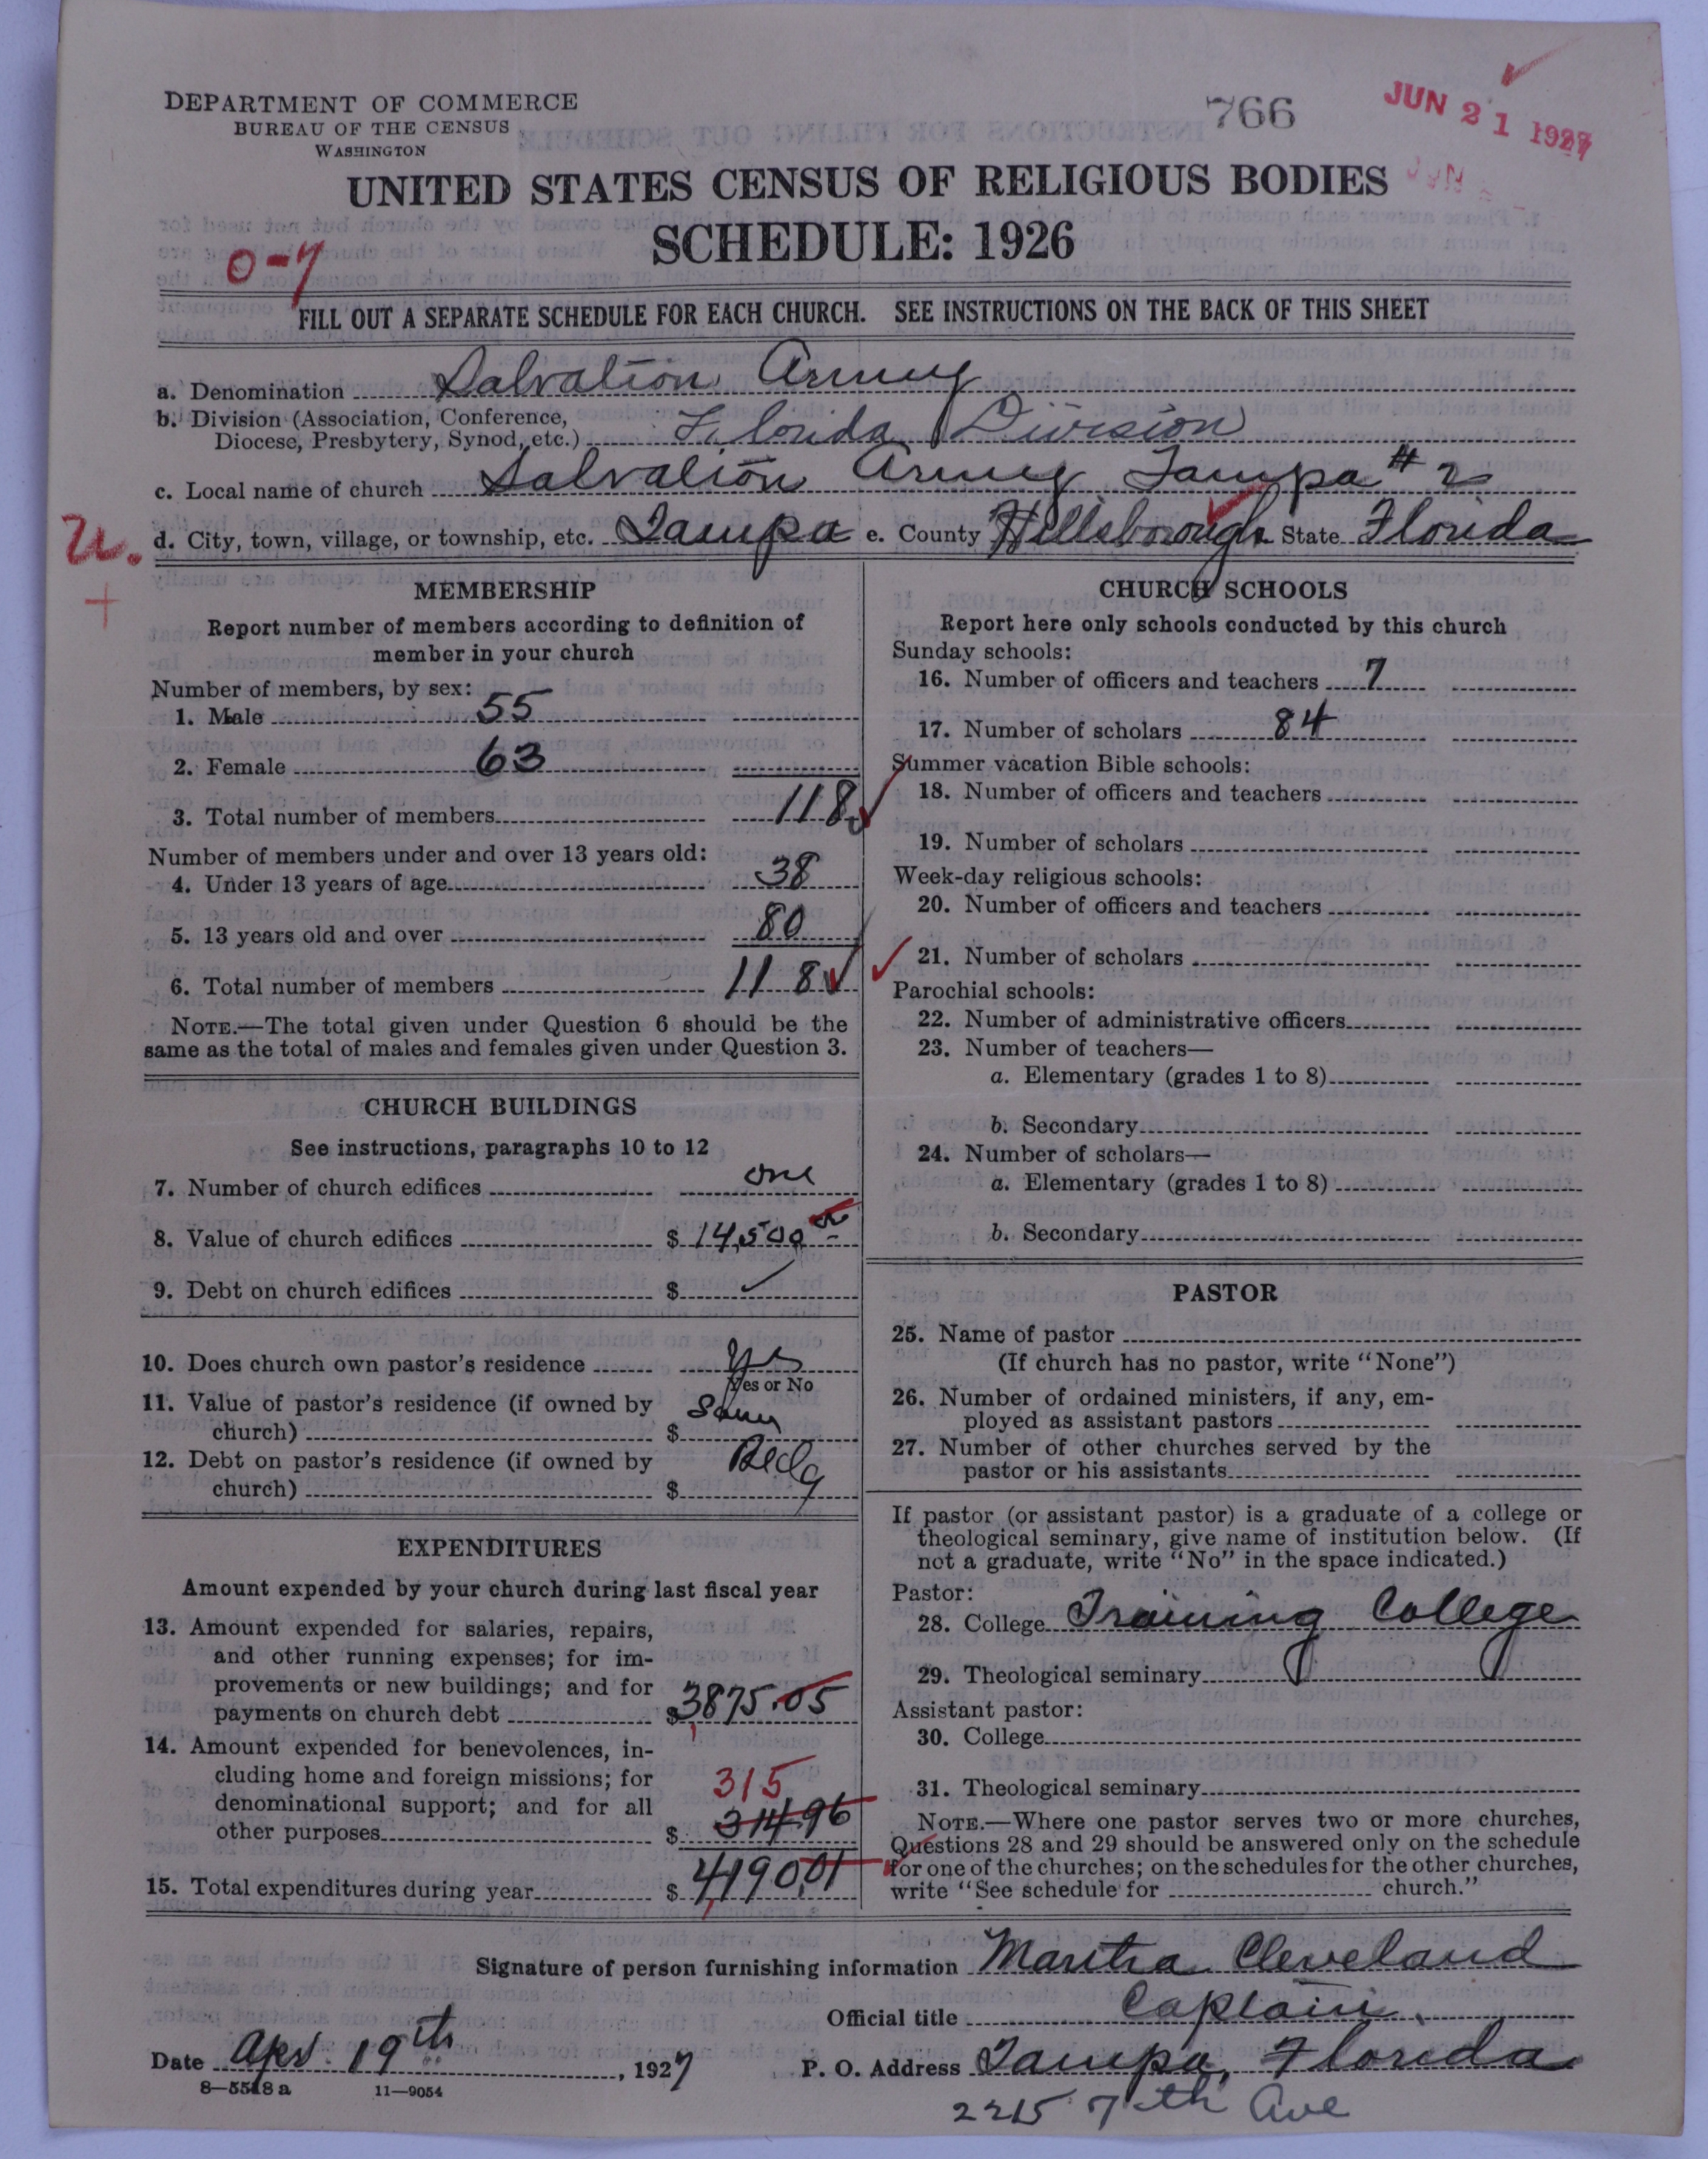 DEPARTMENT OF COMMERCE
BUREAU OF THE CENSUS
WASHINGTON
766
JUN 21 1927
UNITED STATES CENSUS OF RELIGIOUS BODIES
SCHEDULE: 1926
0-7
FILL OUT A SEPARATE SCHEDULE FOR EACH CHURCH. SEE INSTRUCTIONS ON THE BACK OF THIS SHEET
a. Denomination Salvation Army
b. Division (Association, Conference,
Diocese, Presbytery, Synod, etc.) Florida Division
c. Local name of church Salvation Army Tampa #2
U. d. City, town, village, or township, etc. Tampa e. County Hillsborough State Florida
+
MEMBERSHIP
Report number of members according to definition of
member in your church
Number of members, by sex:
1. Male 55
2. Female 63
3. Total number of members 118
Number of members under and over 13 years old:
4. Under 13 years of age 38
5. 13 years old and over 80
6. Total number of members 118
NOTE.—The total given under Question 6 should be the
same as the total of males and females given under Question 3.
CHURCH BUILDINGS
See instructions, paragraphs 10 to 12
7. Number of church edifices one
8. Value of church edifices $ 14,500
9. Debt on church edifices $
10. Does church own pastor's residence Yes
Yes or No
11. Value of pastor's residence (if owned by
church) $ Same
12. Debt on pastor's residence (if owned by
church) $ Bldg
EXPENDITURES
Amount expended by your church during last fiscal year
13. Amount expended for salaries, repairs,
and other running expenses; for im-
provements or new buildings; and for
payments on church debt $ 3875.05
14. Amount expended for benevolences, in-
cluding home and foreign missions; for
315
denominational support; and for all
other purposes $ 314.96
15. Total expenditures during year $ 4190.01
CHURCH SCHOOLS
Report here only schools conducted by this church
Sunday schools:
16. Number of officers and teachers 7
17. Number of scholars 84
Summer vacation Bible schools:
18. Number of officers and teachers
19. Number of scholars
Week-day religious schools:
20. Number of officers and teachers
21. Number of scholars
Parochial schools:
22. Number of administrative officers
23. Number of teachers—
a. Elementary (grades 1 to 8)
b. Secondary
24. Number of scholars—
a. Elementary (grades 1 to 8)
b. Secondary
PASTOR
25. Name of pastor
(If church has no pastor, write "None")
26. Number of ordained ministers, if any, em-
ployed as assistant pastors
27. Number of other churches served by the
pastor or his assistants
If pastor (or assistant pastor) is a graduate of a college or
theological seminary, give name of institution below. (If
not a graduate, write "No" in the space indicated.)
Pastor:
28. College Training College
29. Theological seminary
Assistant pastor:
30. College
31. Theological seminary
NOTE.—Where one pastor serves two or more churches,
Questions 28 and 29 should be answered only on the schedule
for one of the churches; on the schedules for the other churches,
write "See schedule for church."
Signature of person furnishing information Martha Cleveland
Official title Captain
Date Apr 19th, 1927 P. O. Address Tampa, Florida
8—5518 a 11—9054
2215 7th Ave